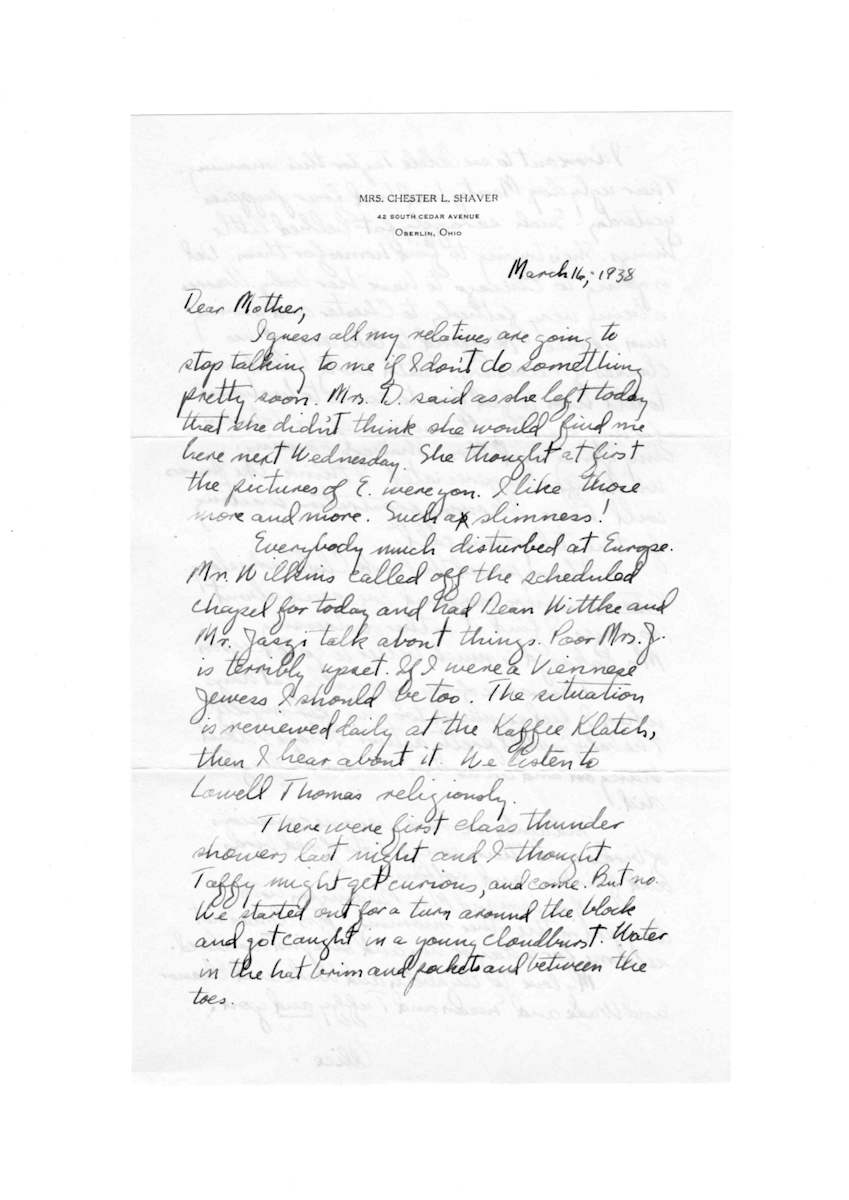 MRS. CHESTER L. SHAVER
42 SOUTH CEDAR AVENUE
OBERLIN, OHIO
March 16, 1938
Dear Mother,
I guess all my relatives are going to
stop talking to me if I don't do something
pretty soon. Mrs. D. said as she left today
that she didn't think she would find me
here next Wednesday. She thought at first
the pictures of E. were you. I like those
more and more. Such a slimness!
Everybody much disturbed at Europe.
Mr. Wilkins called off the scheduled
chapel for today and had Dean Wittke and
Mr. Jaszi talk about things. Poor Mrs. J.
is terribly upset. If I were a Viennese
Jewess I should be too. The situation
is reviewed daily at the Kaffee Klatch,
then I hear about it. We listen to
Lowell Thomas religiously.
There were first class thunder
showers last night and I thought
Taffy might get curious, and come. But no.
We started out for a turn around the block
and got caught in a young cloudburst. Water
in the hat brim and pockets and between the
toes.